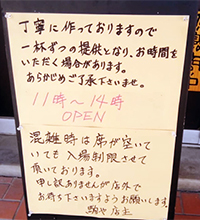 丁寧に作っておりますので
一杯ずつの提供となり、お時間を
いただく場合があります。
あらかじめご了承下さいませ。
11時〜14時
OPEN
混雑時は席が空いて
いても入場制限させて
頂いております。
申し訳ありませんが店外で
お待ち下さいますようお願いします。
店主